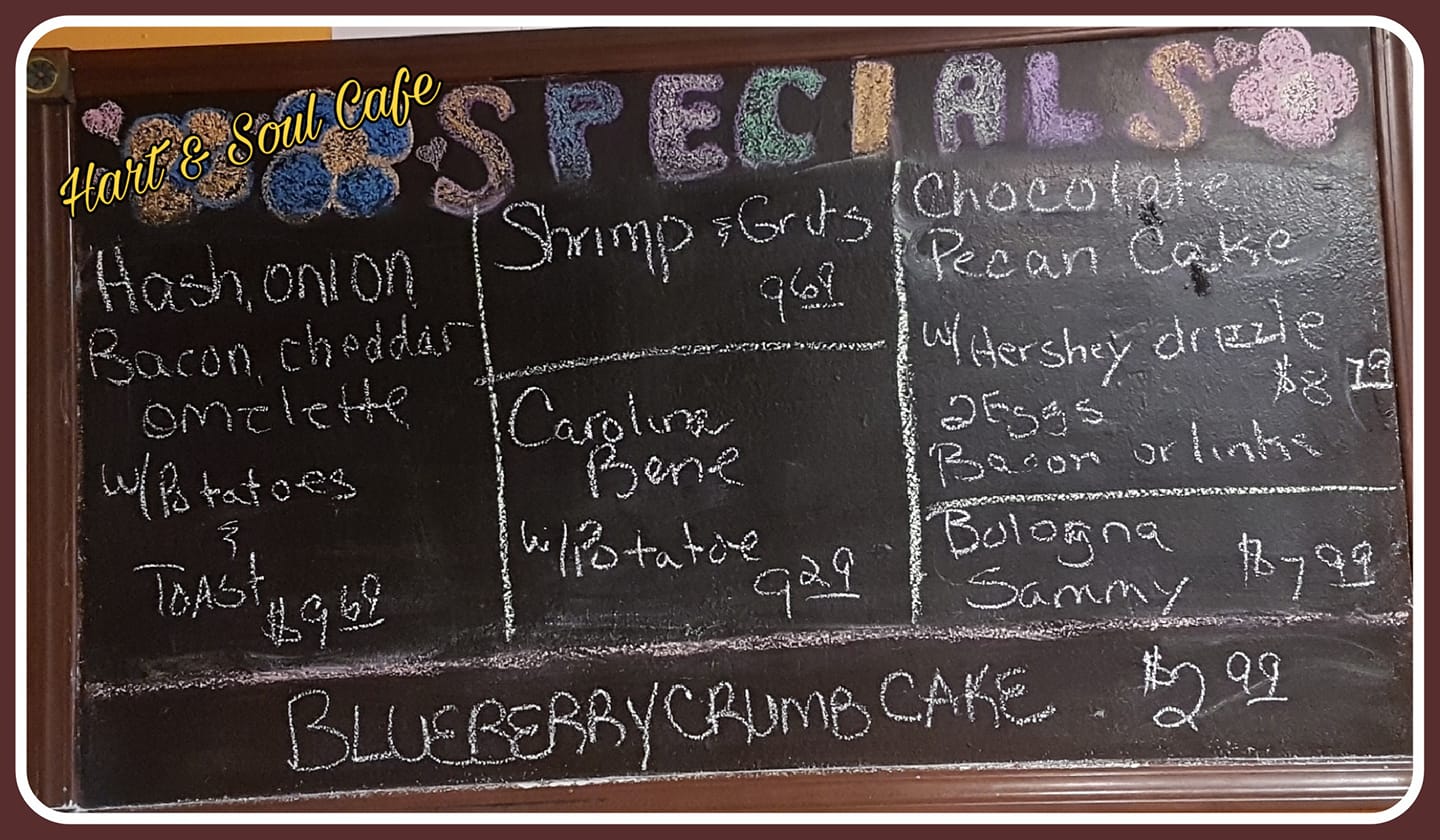 Hart & Soul Cafe
SPECIALS
Hash, onion
Bacon, cheddar
omelette
w/Potatoes
&
TOAST $9 69
Shrimp & Grits
9 69
Carolina
Bene
w/Potatoe
9 29
Chocolate
Pecan Cake
w/Hershey drizzle
$8 79
2 Eggs
Bacon or links
Bologna
Sammy $7 99
BLUEBERRY CRUMB CAKE $2 99